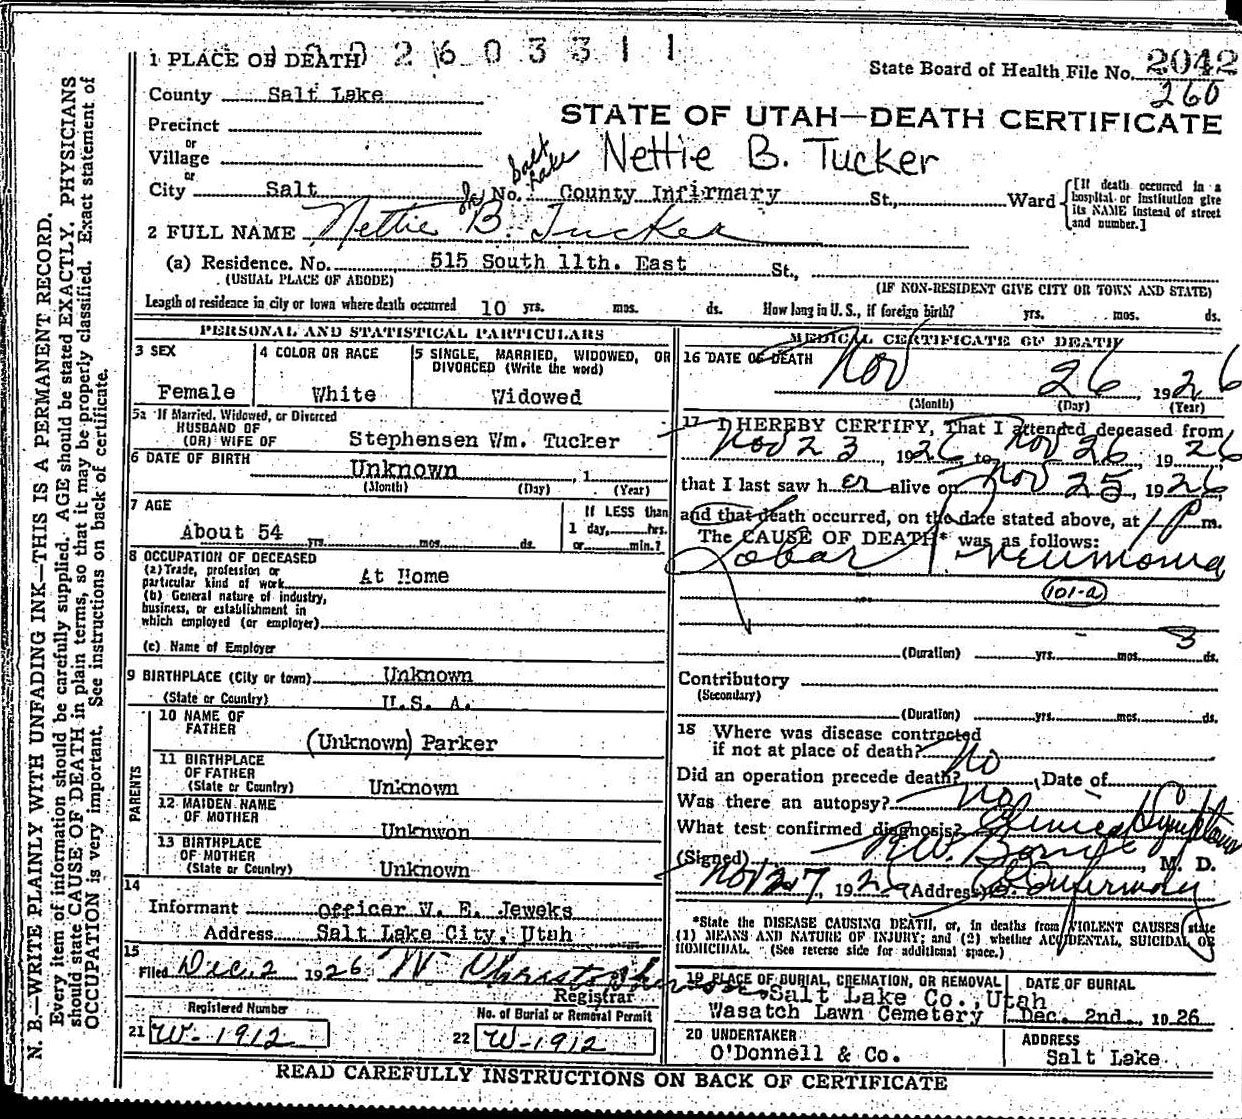 1 PLACE OF DEATH 2 6 0 3 3 1 1
State Board of Health File No. 2042
260
County Salt Lake
STATE OF UTAH—DEATH CERTIFICATE
Precinct
or
Village
Nettie B. Tucker
or
City Salt Lake No. Salt Lake County Infirmary St., Ward
[If death occurred in a hospital or institution give its NAME instead of street and number.]
2 FULL NAME Nettie B. Tucker
(a) Residence. No. 515 South 11th. East St.,
(USUAL PLACE OF ABODE) (IF NON-RESIDENT GIVE CITY OR TOWN AND STATE)
Length of residence in city or town where death occurred 10 yrs. mos. ds. How long in U. S., if foreign birth? yrs. mos. ds.
PERSONAL AND STATISTICAL PARTICULARS
3 SEX
Female
4 COLOR OR RACE
White
5 SINGLE, MARRIED, WIDOWED, OR
DIVORCED (Write the word)
Widowed
5a If Married, Widowed, or Divorced
HUSBAND OF
(OR) WIFE OF Stephensen Wm. Tucker
6 DATE OF BIRTH Unknown , 1
(Month) (Day) (Year)
7 AGE
About 54 yrs. mos. ds.
If LESS than
1 day, hrs.
or min.?
8 OCCUPATION OF DECEASED
(a) Trade, profession or
particular kind of work At Home
(b) General nature of industry,
business, or establishment in
which employed (or employer)
(c) Name of Employer
9 BIRTHPLACE (City or town) Unknown
(State or Country) U.S. A.
PARENTS
10 NAME OF
FATHER
(Unknown) Parker
11 BIRTHPLACE
OF FATHER
(State or Country) Unknown
12 MAIDEN NAME
OF MOTHER
Unknwon
13 BIRTHPLACE
OF MOTHER
(State or Country) Unknown
14
Informant Officer W. E. Jeweks
Address Salt Lake City, Utah
15
Filed Dec. 2 1926
Registrar
Registered Number No. of Burial or Removal Permit
21 W-1912 22 W-1912
MEDICAL CERTIFICATE OF DEATH
16 DATE OF DEATH
Nov 26, 1926
(Month) (Day) (Year)
17 I HEREBY CERTIFY, That I attended deceased from
Nov 23, 1926, to Nov 26, 1926
that I last saw h er alive on Nov 25, 1926,
and that death occurred, on the date stated above, at 1 P m.
The CAUSE OF DEATH* was as follows:
Lobar Pneumonia
101-a
(Duration) yrs. mos. 3 ds.
Contributory
(Secondary)
(Duration) yrs. mos. ds.
18 Where was disease contracted
if not at place of death?
No
Did an operation precede death? , Date of
Was there an autopsy? No
What test confirmed diagnosis? Clinical Symptoms
(Signed) R.W. , M. D.
Nov 27, 1926 (Address) Infirmary
*State the DISEASE CAUSING DEATH, or, in deaths from VIOLENT CAUSES, state
(1) MEANS AND NATURE OF INJURY; and (2) whether ACCIDENTAL, SUICIDAL OR
HOMICIDAL. (See reverse side for additional space.)
19 PLACE OF BURIAL, CREMATION, OR REMOVAL
Salt Lake Co., Utah
Wasatch Lawn Cemetery
DATE OF BURIAL
Dec. 2nd., 1926
20 UNDERTAKER
O'Donnell & Co.
ADDRESS
Salt Lake
READ CAREFULLY INSTRUCTIONS ON BACK OF CERTIFICATE
N. B.—WRITE PLAINLY WITH UNFADING INK—THIS IS A PERMANENT RECORD.
Every item of information should be carefully supplied. AGE should be stated EXACTLY. PHYSICIANS
should state CAUSE OF DEATH in plain terms, so that it may be properly classified. Exact statement of
OCCUPATION is very important. See instructions on back of certificate.